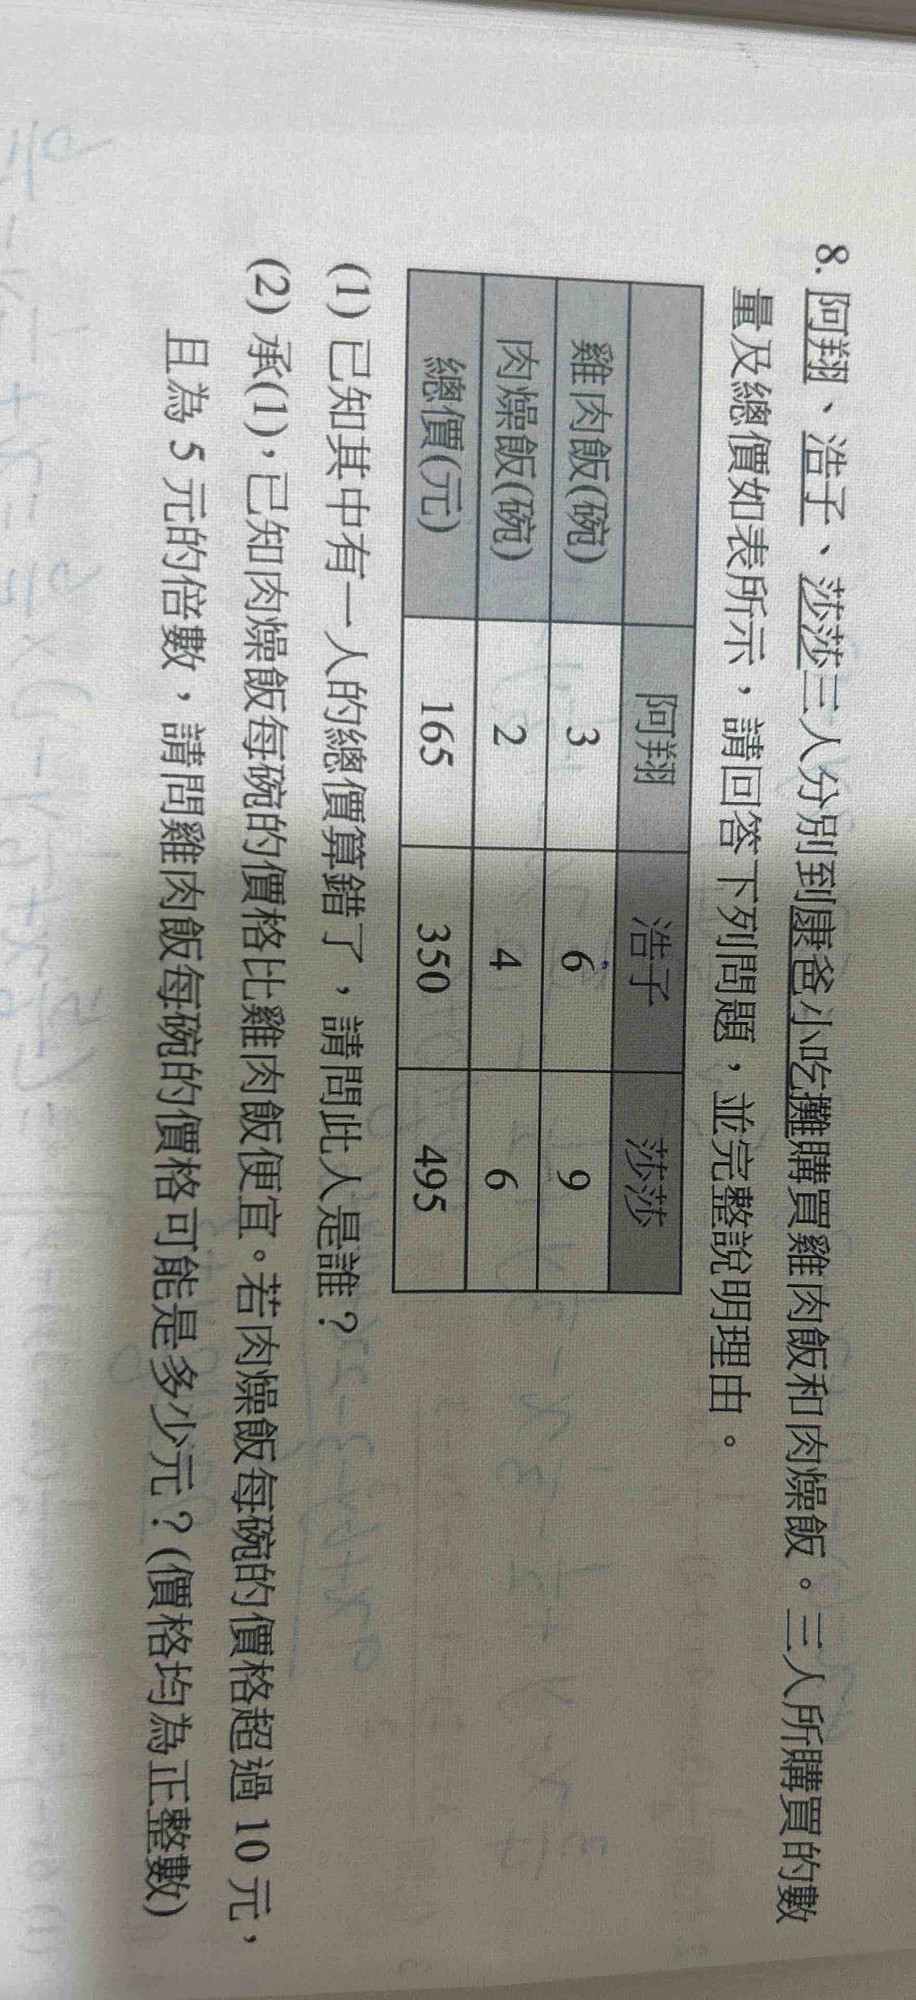 8. 阿翔、浩子、莎莎三人分別到康爸小吃攤購買雞肉飯和肉燥飯。三人所購買的數
量及總價如表所示，請回答下列問題，並完整說明理由。
阿翔 浩子 莎莎
雞肉飯(碗) 3 6 9
肉燥飯(碗) 2 4 6
總價(元) 165 350 495
(1) 已知其中有一人的總價算錯了，請問此人是誰？
(2) 承(1)，已知肉燥飯每碗的價格比雞肉飯便宜。若肉燥飯每碗的價格超過 10 元，
且為 5 元的倍數，請問雞肉飯每碗的價格可能是多少元？(價格均為正整數)